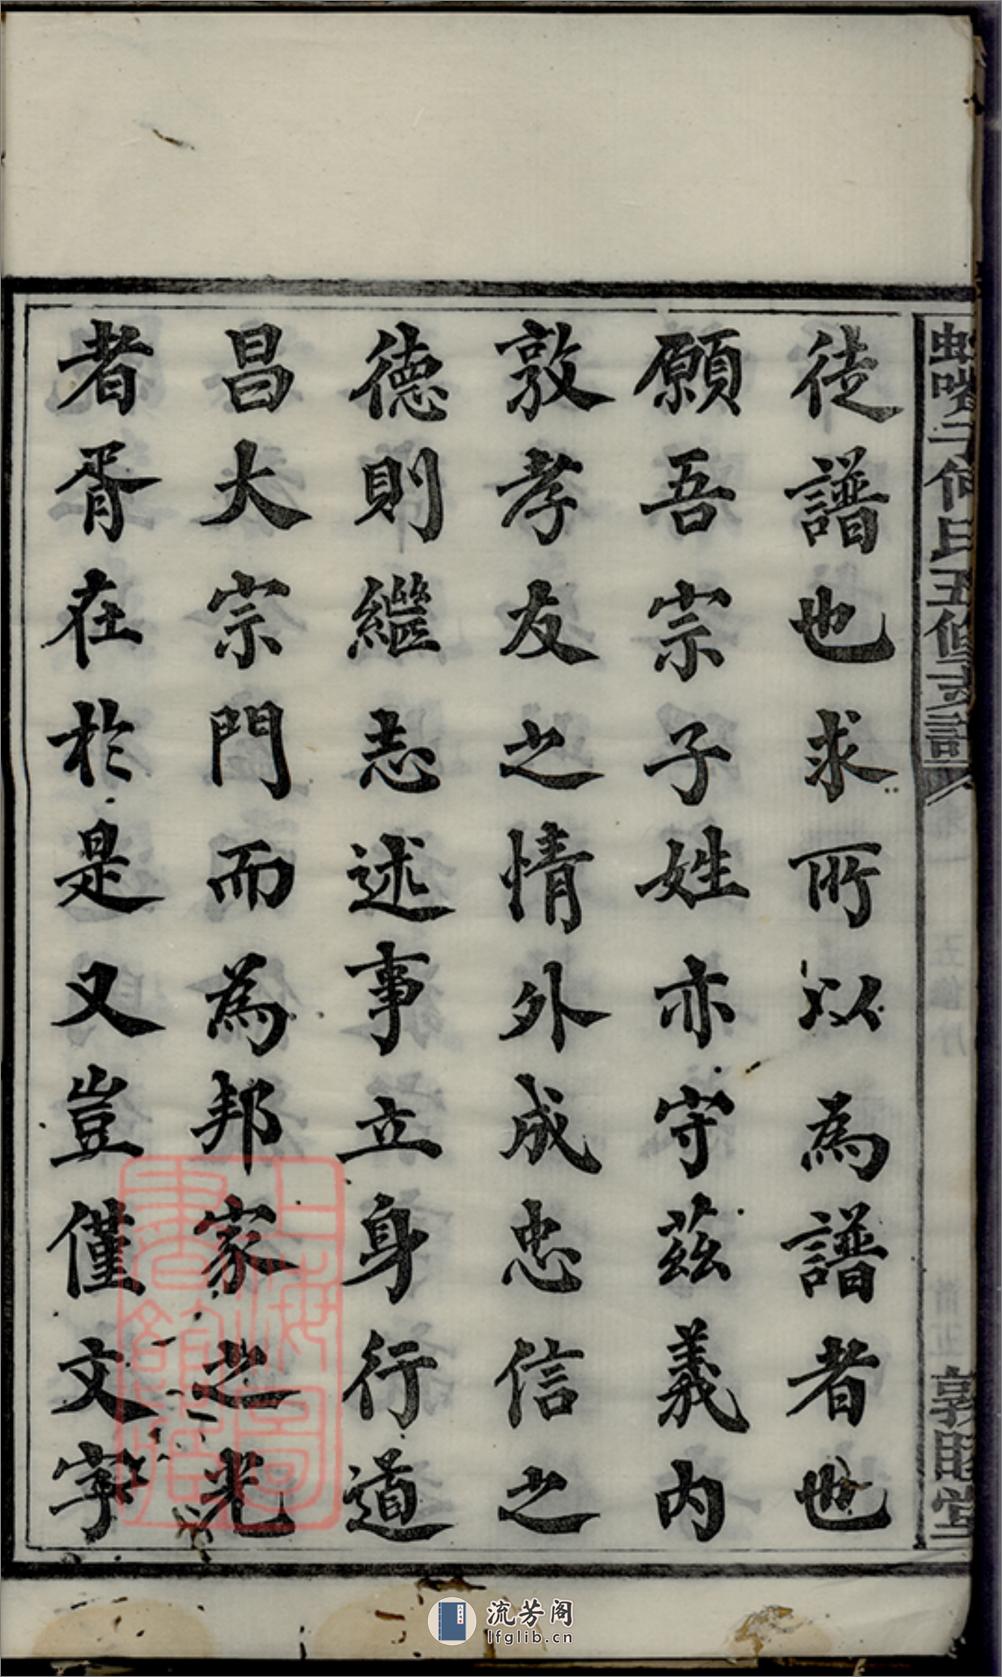 何氏五修支譜
敦睦堂
徒譜也求所以為譜者也
願吾宗子姓亦守茲義內
敦孝友之情外成忠信之
德則繼志述事立身行道
昌大宗門而為邦家之光
者胥在於是又豈僅文字
上海圖書館藏
流芳阁
lfglib.cn